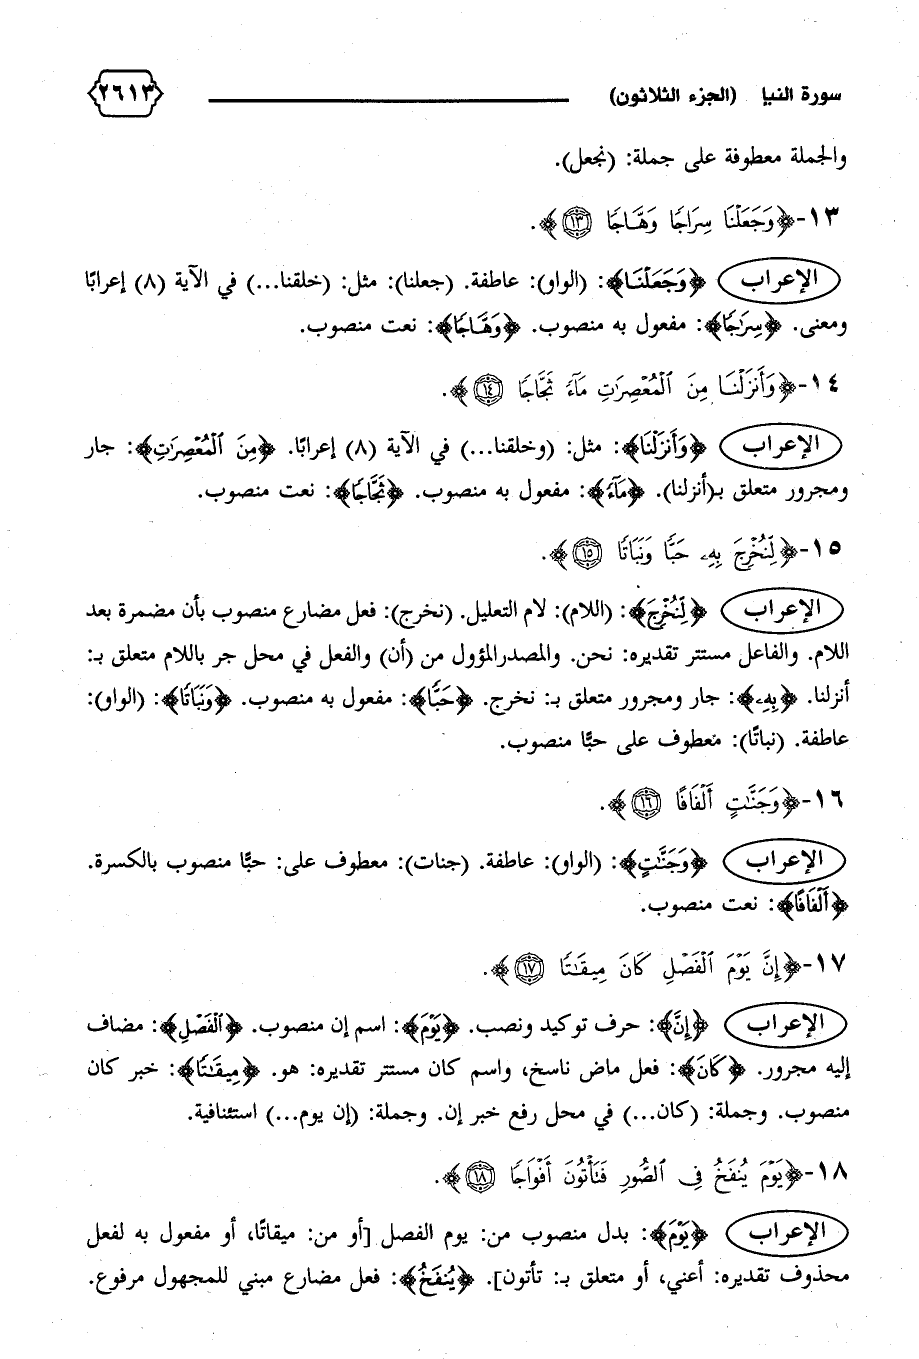 سورة النبإ (الجزء الثلاثون) ٢٦١٣
والجملة معطوفة على جملة: (نجعل).
١٣-﴿وَجَعَلْنَا سِرَاجًا وَهَّاجًا ۝١٣﴾.
الإعراب ﴿وَجَعَلْنَا﴾: (الواو): عاطفة. (جعلنا): مثل: (خلقنا...) في الآية (٨) إعرابًا
ومعنى. ﴿سِرَاجًا﴾: مفعول به منصوب. ﴿وَهَّاجًا﴾: نعت منصوب.
١٤-﴿وَأَنزَلْنَا مِنَ ٱلْمُعْصِرَٰتِ مَآءً ثَجَّاجًا ۝١٤﴾.
الإعراب ﴿وَأَنزَلْنَا﴾: مثل: (وخلقنا...) في الآية (٨) إعرابًا. ﴿مِنَ ٱلْمُعْصِرَٰتِ﴾: جار
ومجرور متعلق بـ(أنزلنا). ﴿مَآءً﴾: مفعول به منصوب. ﴿ثَجَّاجًا﴾: نعت منصوب.
١٥-﴿لِّنُخْرِجَ بِهِۦ حَبًّا وَنَبَاتًا ۝١٥﴾.
الإعراب ﴿لِّنُخْرِجَ﴾: (اللام): لام التعليل. (نخرج): فعل مضارع منصوب بأن مضمرة بعد
اللام. والفاعل مستتر تقديره: نحن. والمصدرالمؤول من (أن) والفعل في محل جر باللام متعلق بـ:
أنزلنا. ﴿بِهِۦ﴾: جار ومجرور متعلق بـ: نخرج. ﴿حَبًّا﴾: مفعول به منصوب. ﴿وَنَبَاتًا﴾: (الواو):
عاطفة. (نباتًا): معطوف على حبًّا منصوب.
١٦-﴿وَجَنَّٰتٍ أَلْفَافًا ۝١٦﴾.
الإعراب ﴿وَجَنَّٰتٍ﴾: (الواو): عاطفة. (جنات): معطوف على: حبًّا منصوب بالكسرة.
﴿أَلْفَافًا﴾: نعت منصوب.
١٧-﴿إِنَّ يَوْمَ ٱلْفَصْلِ كَانَ مِيقَٰتًا ۝١٧﴾.
الإعراب ﴿إِنَّ﴾: حرف توكيد ونصب. ﴿يَوْمَ﴾: اسم إن منصوب. ﴿ٱلْفَصْلِ﴾: مضاف
إليه مجرور. ﴿كَانَ﴾: فعل ماض ناسخ، واسم كان مستتر تقديره: هو. ﴿مِيقَٰتًا﴾: خبر كان
منصوب. وجملة: (كان...) في محل رفع خبر إن. وجملة: (إن يوم...) استئنافية.
١٨-﴿يَوْمَ يُنفَخُ فِى ٱلصُّورِ فَتَأْتُونَ أَفْوَاجًا ۝١٨﴾.
الإعراب ﴿يَوْمَ﴾: بدل منصوب من: يوم الفصل [أو من: ميقاتًا، أو مفعول به لفعل
محذوف تقديره: أعني، أو متعلق بـ: تأتون]. ﴿يُنفَخُ﴾: فعل مضارع مبني للمجهول مرفوع.